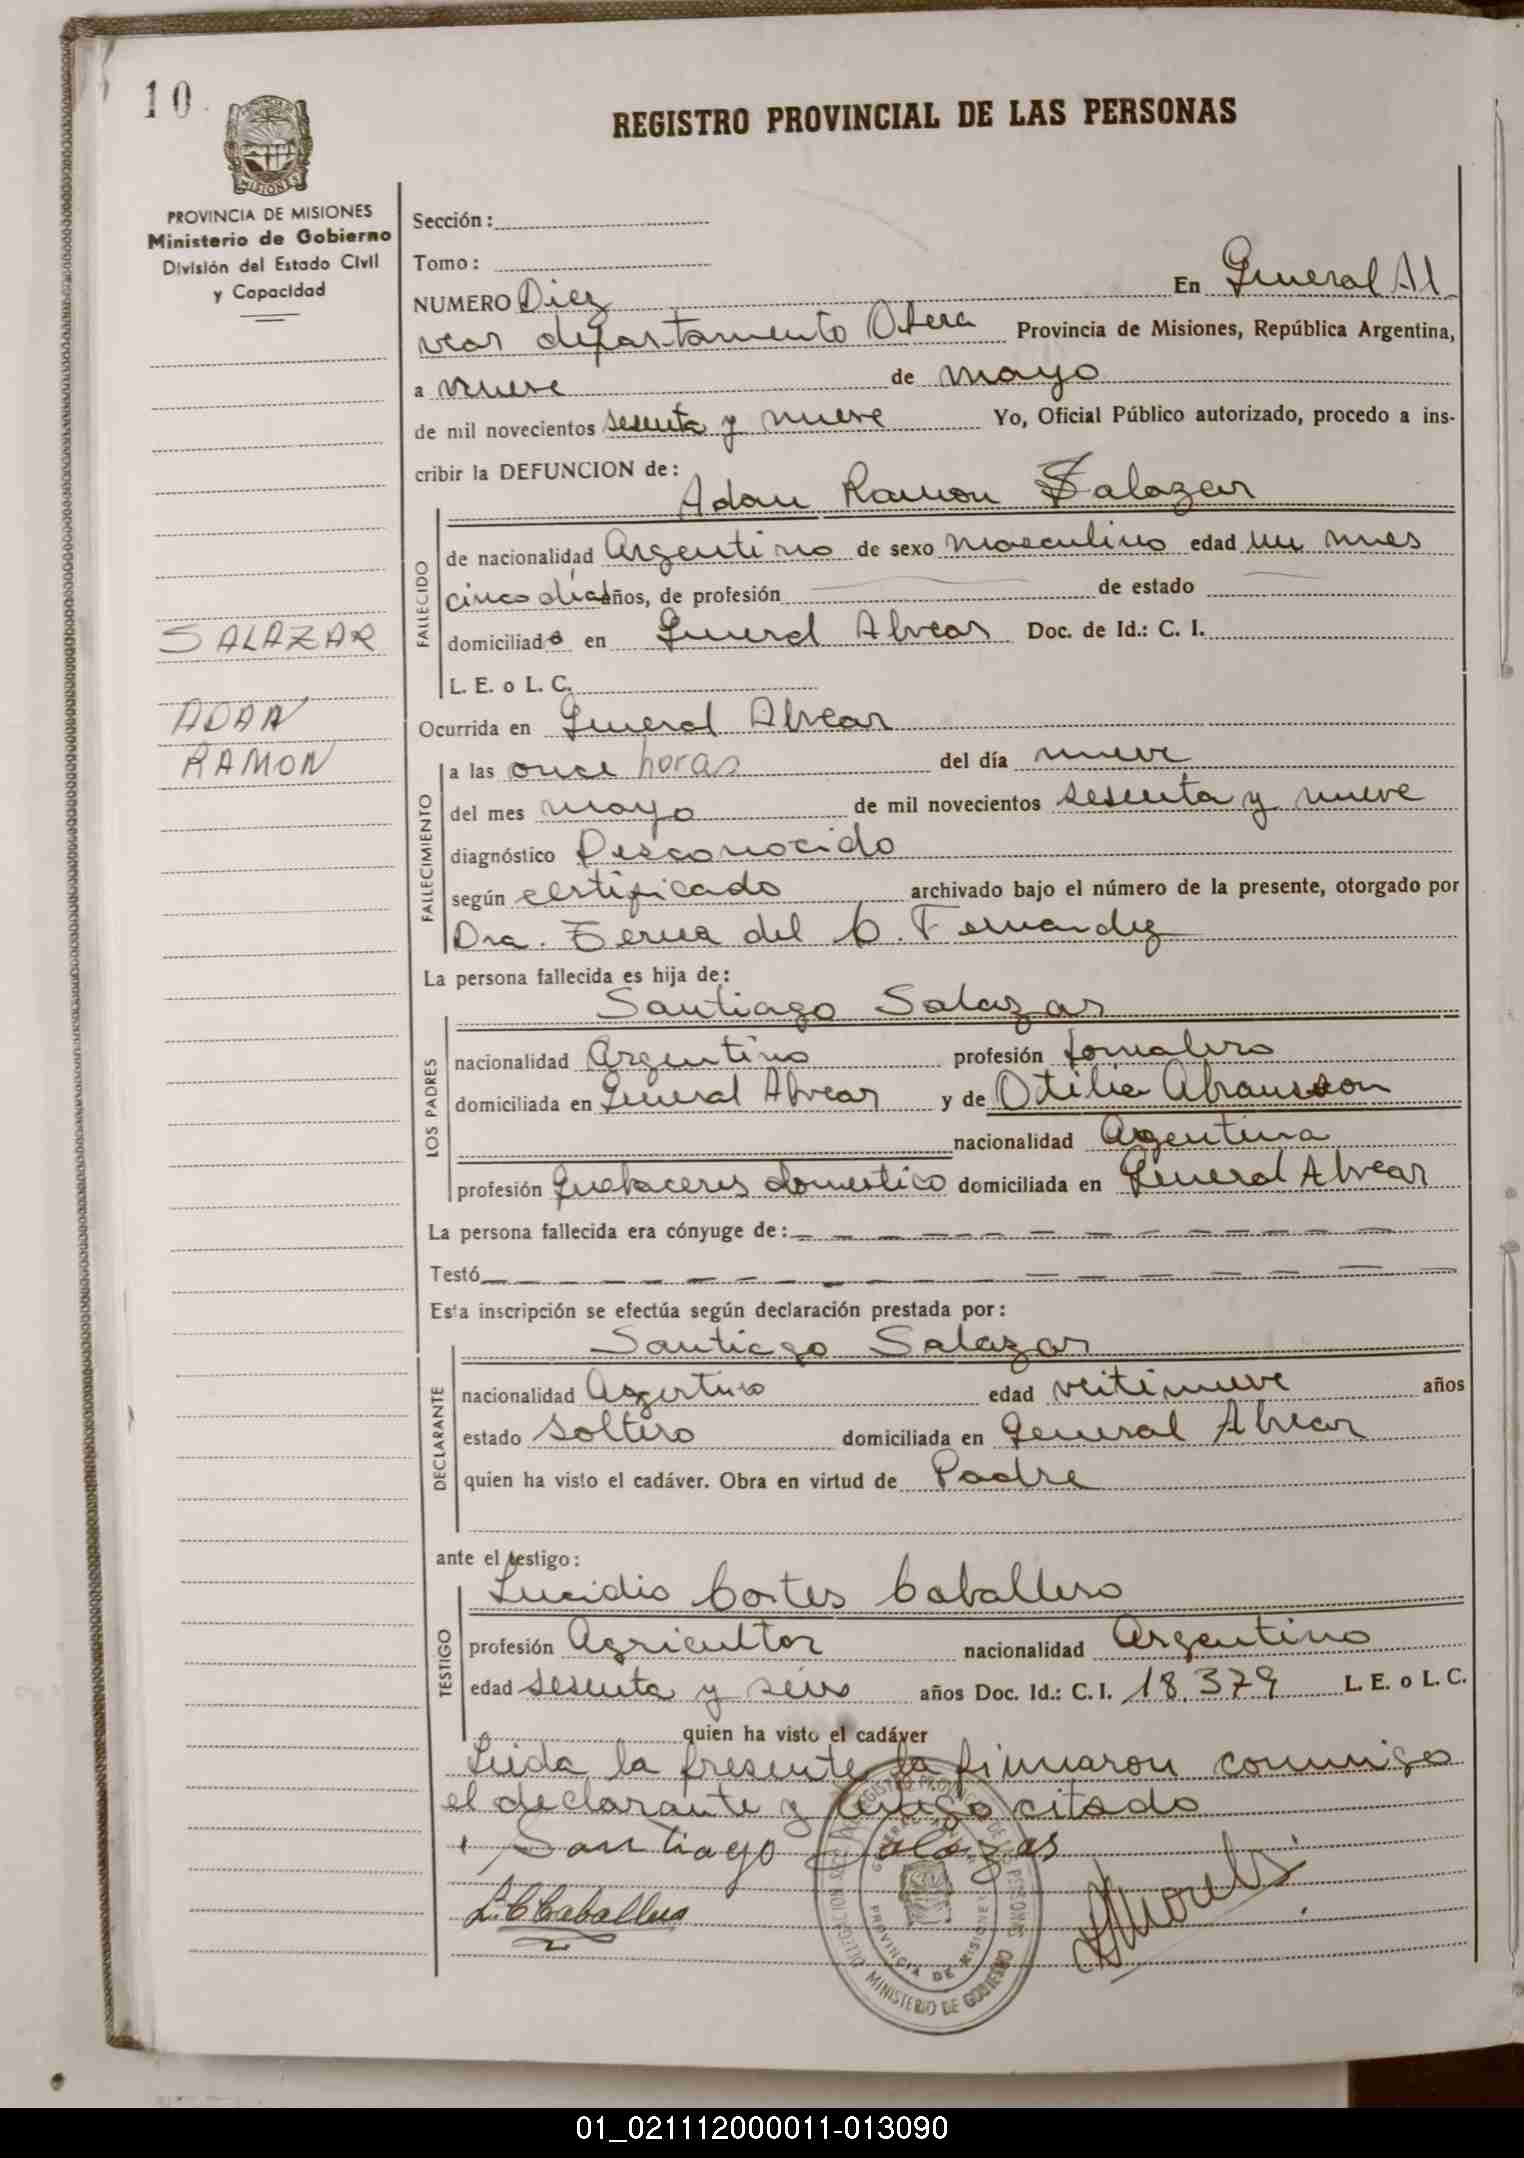 10
REGISTRO PROVINCIAL DE LAS PERSONAS
MISIONES
PROVINCIA DE MISIONES
Ministerio de Gobierno
División del Estado Civil
y Capacidad
SALAZAR
ADAN
RAMON
Sección:
Tomo:
NUMERO Diez En General Al
vear departamento Obera Provincia de Misiones, República Argentina,
a nueve de mayo
de mil novecientos sesenta y nueve Yo, Oficial Público autorizado, procedo a ins-
cribir la DEFUNCION de:
Adan Ramon Salazar
FALLECIDO
de nacionalidad Argentino de sexo masculino edad un mes
cinco días años, de profesión de estado
domiciliado en General Alvear Doc. de Id.: C. I.
L. E. o L. C.
Ocurrida en General Alvear
FALLECIMIENTO
a las once horas del día nueve
del mes mayo de mil novecientos sesenta y nueve
diagnóstico Desconocido
según certificado archivado bajo el número de la presente, otorgado por
Dra. del C. Fernandez
La persona fallecida es hija de:
Santiago Salazar
LOS PADRES
nacionalidad Argentino profesión Jornalero
domiciliada en General Alvear y de Otilia
nacionalidad Argentina
profesión Quehaceres domestico domiciliada en General Alvear
La persona fallecida era cónyuge de:
Testó
Esta inscripción se efectúa según declaración prestada por:
Santiago Salazar
DECLARANTE
nacionalidad Argentino edad veitinueve años
estado soltero domiciliada en General Alvear
quien ha visto el cadáver. Obra en virtud de Padre
ante el testigo:
Lucidio Cortes Caballero
TESTIGO
profesión Agricultor nacionalidad Argentino
edad sesenta y seis años Doc. Id.: C. I. 18.379 L. E. o L. C.
quien ha visto el cadáver
Leida la presente la firmaron conmigo
el declarante y testigo citado
Santiago Salazar
L. C. Caballero
REGISTRO PROVINCIAL DE LAS PERSONAS
PROVINCIA DE MISIONES
MINISTERIO DE GOBIERNO
01_021112000011-013090